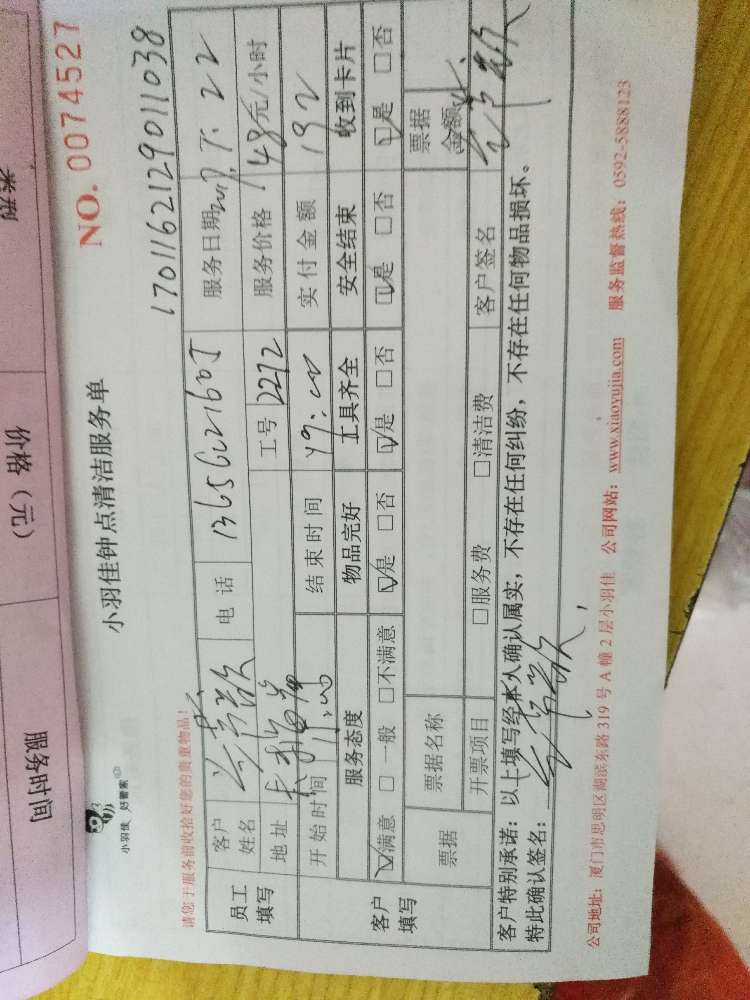 服务时间
价格（元）
类别
小羽佳 好管家
小羽佳钟点清洁服务单
NO. 0074527
请您于服务前收拾好您的贵重物品！
17011621290111038
员工填写
客户姓名
电 话
服务日期
7.22
地址
工号 2272
服务价格 48元/小时
开始时间
结束时间 19:00
实付金额 192
客户填写
服务态度
物品完好
工具齐全
安全结束
收到卡片
☑满意 □ 一般 □不满意
☑是 □否
☑是 □否
☑是 □否
☑是 □否
票据
票据名称
票据金额
开票项目
□服务费 □清洁费
客户签名
客户特别承诺：以上填写经本人确认属实，不存在任何纠纷，不存在任何物品损坏。
特此确认签名：
公司地址：厦门市思明区湖滨东路 319 号 A 幢 2 层小羽佳 公司网站：www.xiaoyujia.com 服务监督热线：0592-5888123